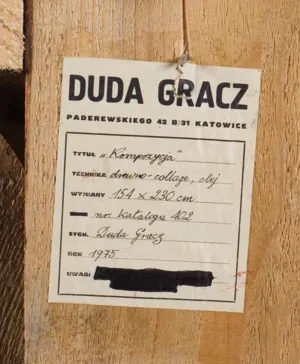 DUDA GRACZ
PADEREWSKIEGO 42 B/31 KATOWICE
TYTUŁ „Kompozycja"
TECHNIKA drewno-collage, olej
WYMIARY 154 x 230 cm
nr. katalogu 102
SYGN. Duda Gracz
ROK 1975
UWAGI